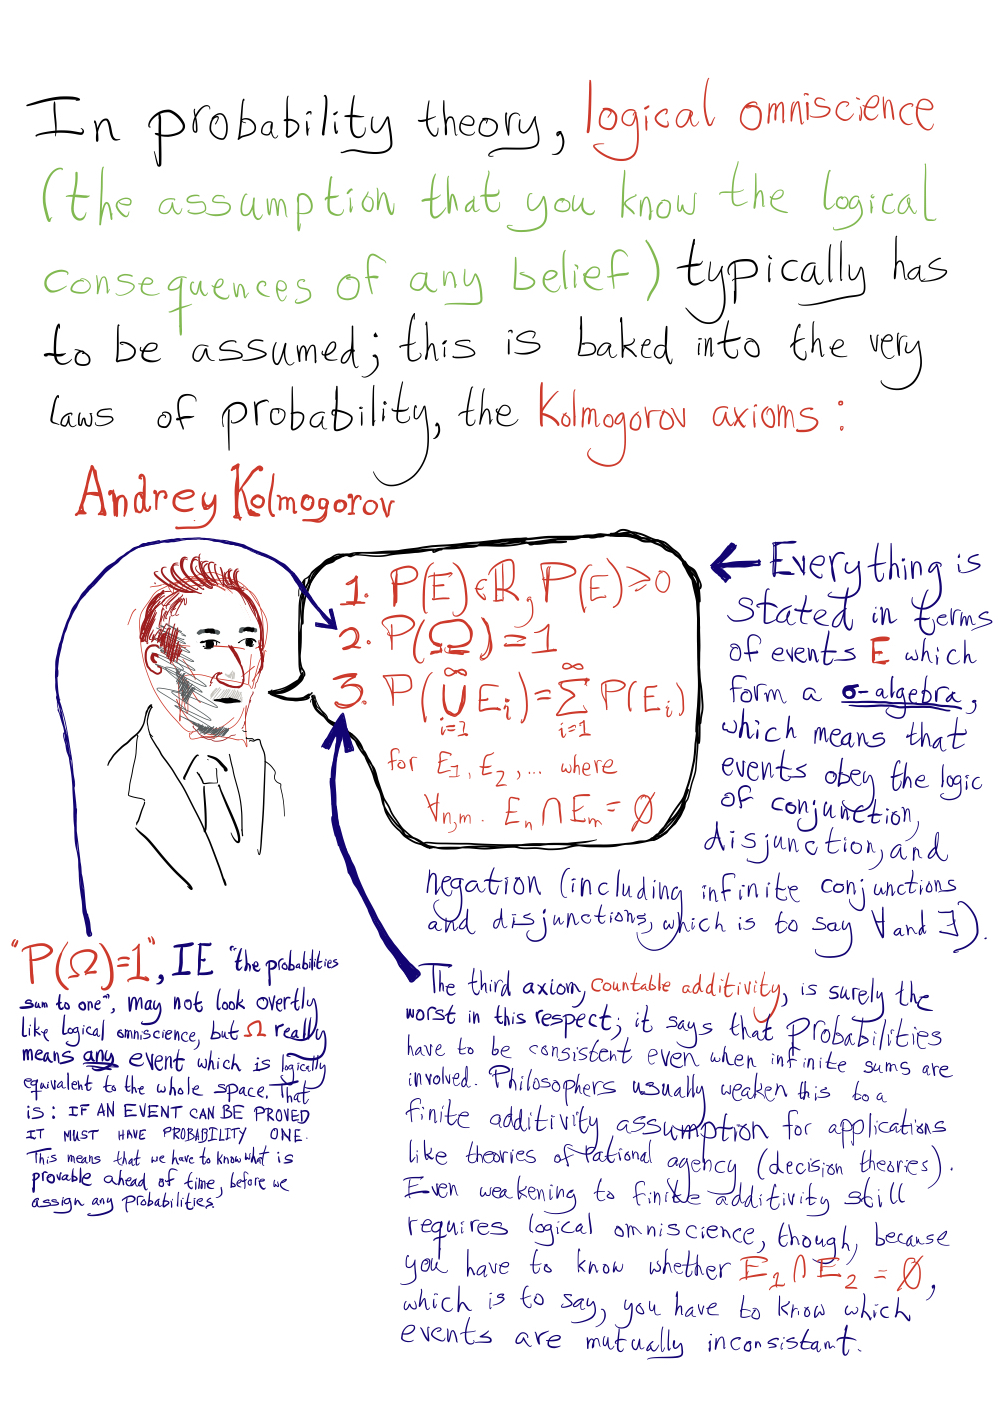 In probability theory, logical omniscience
(the assumption that you know the logical
consequences of any belief) typically has
to be assumed; this is baked into the very
laws of probability, the Kolmogorov axioms:
Andrey Kolmogorov
1. P(E)∈ℝ, P(E)≥0
2. P(Ω)=1
3. P(∞⋃i=1 Ei)=∞∑i=1 P(Ei)
for E1, E2, ... where
∀n,m. En ∩ Em = ∅
Everything is
stated in terms
of events E which
form a σ-algebra,
which means that
events obey the logic
of conjunction,
disjunction, and
negation (including infinite conjunctions
and disjunctions, which is to say ∀ and ∃).
"P(Ω)=1", IE "the probabilities
sum to one", may not look overtly
like logical omniscience, but Ω really
means any event which is logically
equivalent to the whole space. That
is: IF AN EVENT CAN BE PROVED
IT MUST HAVE PROBABILITY ONE.
This means that we have to know what is
provable ahead of time, before we
assign any probabilities.
The third axiom, countable additivity, is surely the
worst in this respect; it says that probabilities
have to be consistent even when infinite sums are
involved. Philosophers usually weaken this to a
finite additivity assumption for applications
like theories of rational agency (decision theories).
Even weakening to finite additivity still
requires logical omniscience, though, because
you have to know whether E1 ∩ E2 = ∅,
which is to say, you have to know which
events are mutually inconsistant.